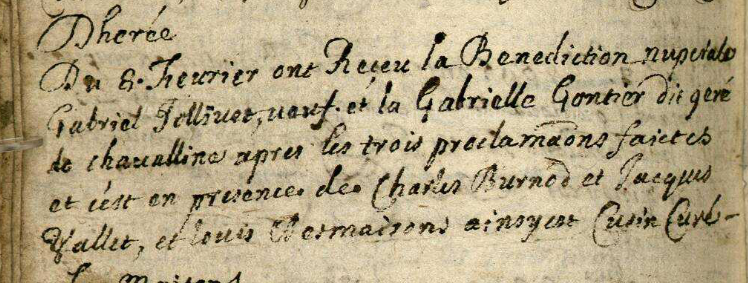 Dherée
Du 8. Feurier ont Reçeu la Benediction nupciale
Gabriel Jollivet, veuf. et la Gabrielle Gontier dit geré
de chavalline apres les trois proclamãons faictes
et c'est en presence de Charles Burnod et Jacques
Vallet, et louis Desmaisons ainsy est Cusin Curé -